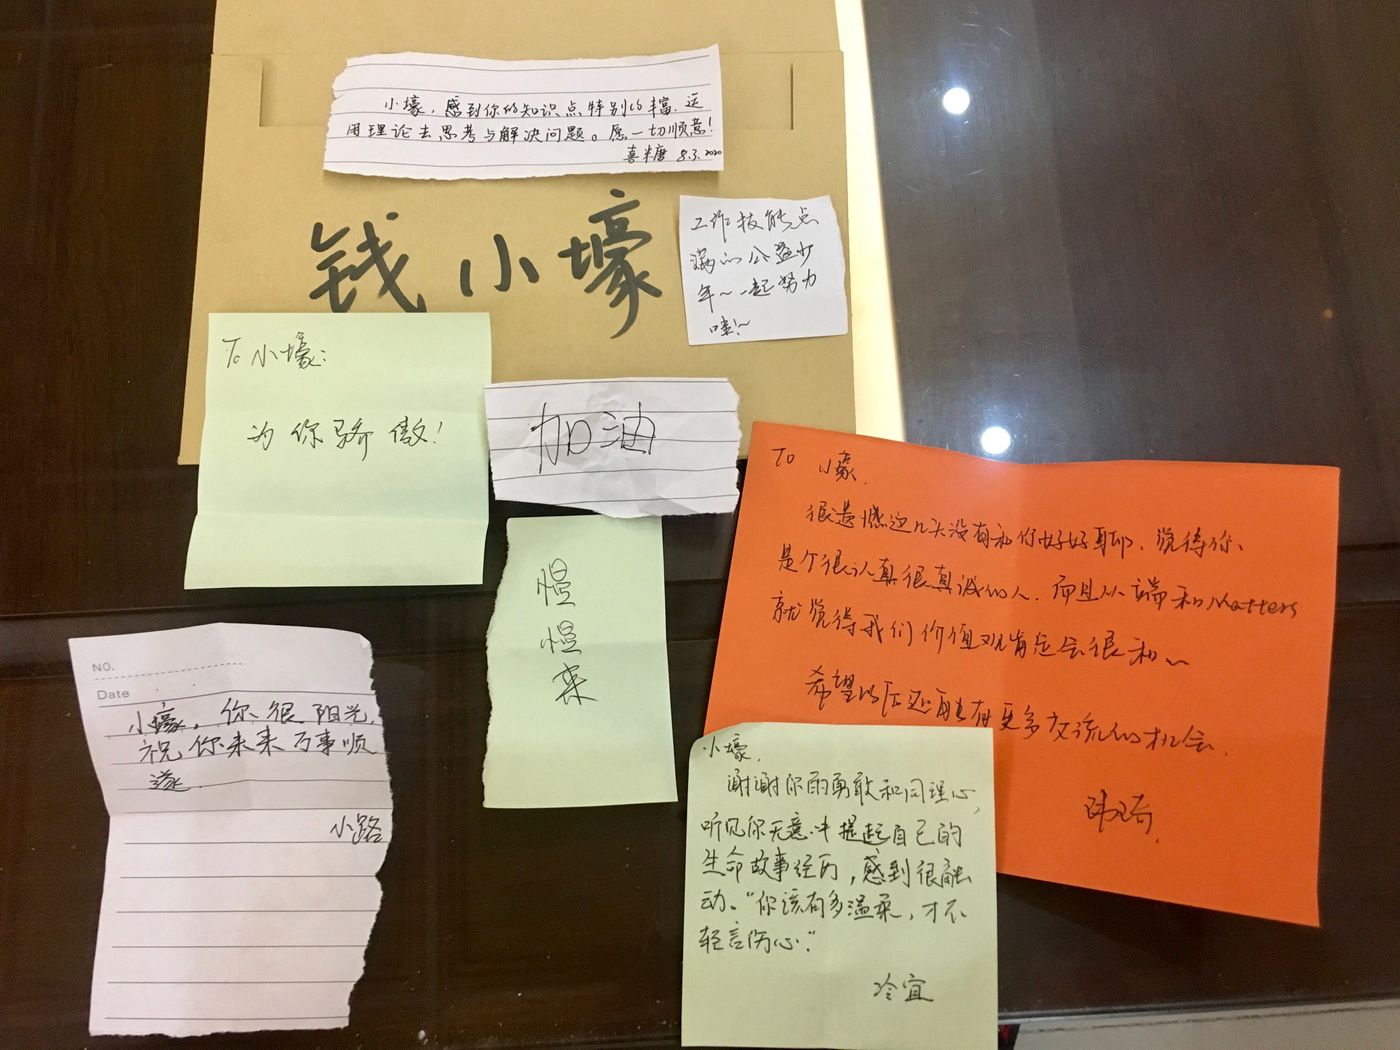 小壕，感到你的知识点特别的丰富，运
用理论去思考与解决问题。愿一切顺意！
喜糖 8.3.2020
钱小壕
工作技能点
满的公益少
年～一起努力
哇！～
To 小壕：
为你骄傲！
加油
慢
慢
来
To 小壕，
很遗憾这几天没有和你好好聊，觉得你
是个很认真很真诚的人，而且从端和Matters
就觉得我们价值观肯定会很和～
希望以后还能有更多交流的机会。
NO.
Date
小壕，你很阳光，
祝你未来万事顺
遂。
小路
小壕，
谢谢你的勇敢和同理心，
听见你无意中提起自己的
生命故事经历，感到很触
动。“你该有多温柔，才不
轻言伤心。”
冷宜